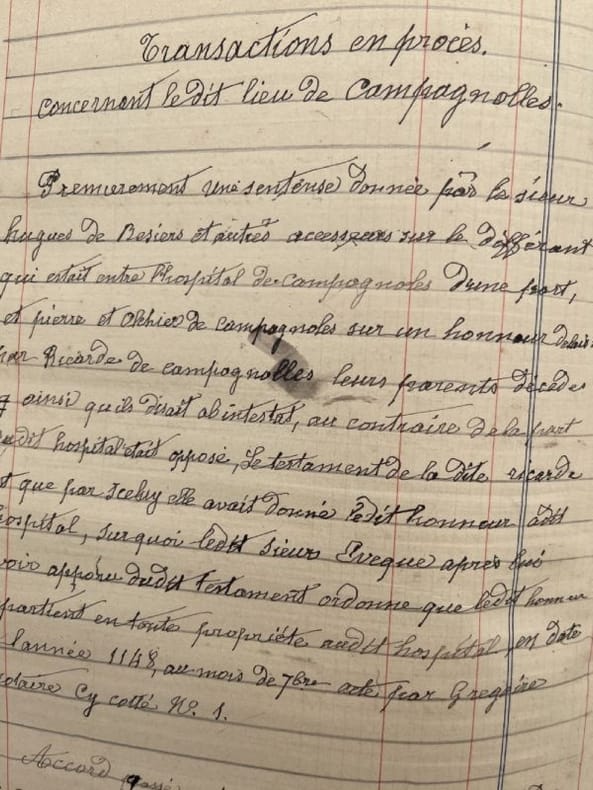 Transactions en procès.
Concernant le dit lieu de Campagnolles.
Premierement une sentense donnée par le sieur
hugues de Besiers et autres accesseurs sur le différant
qui estait entre l'hospital de campagnoles d'une part,
et pierre et de campagnoles sur un honneur
par Ricarde de campagnolles leurs parents décédés
ainsi qu'ils disait abintestat, au contraire de la part
dudit hospital était opposé, Le testament de la dite ricarde
et que par Iceluy elle avait donné ledit honneur audit
hospital, surquoi ledit sieur Eveque après lui
avoir apparu dudit Testament ordonne que ledit honneur
partient en toute propriéte audit hospital, en date
l'année 1148, au mois de 7bre acte par Gregoire
notaire Cy cotté No. 1.
Accord passé